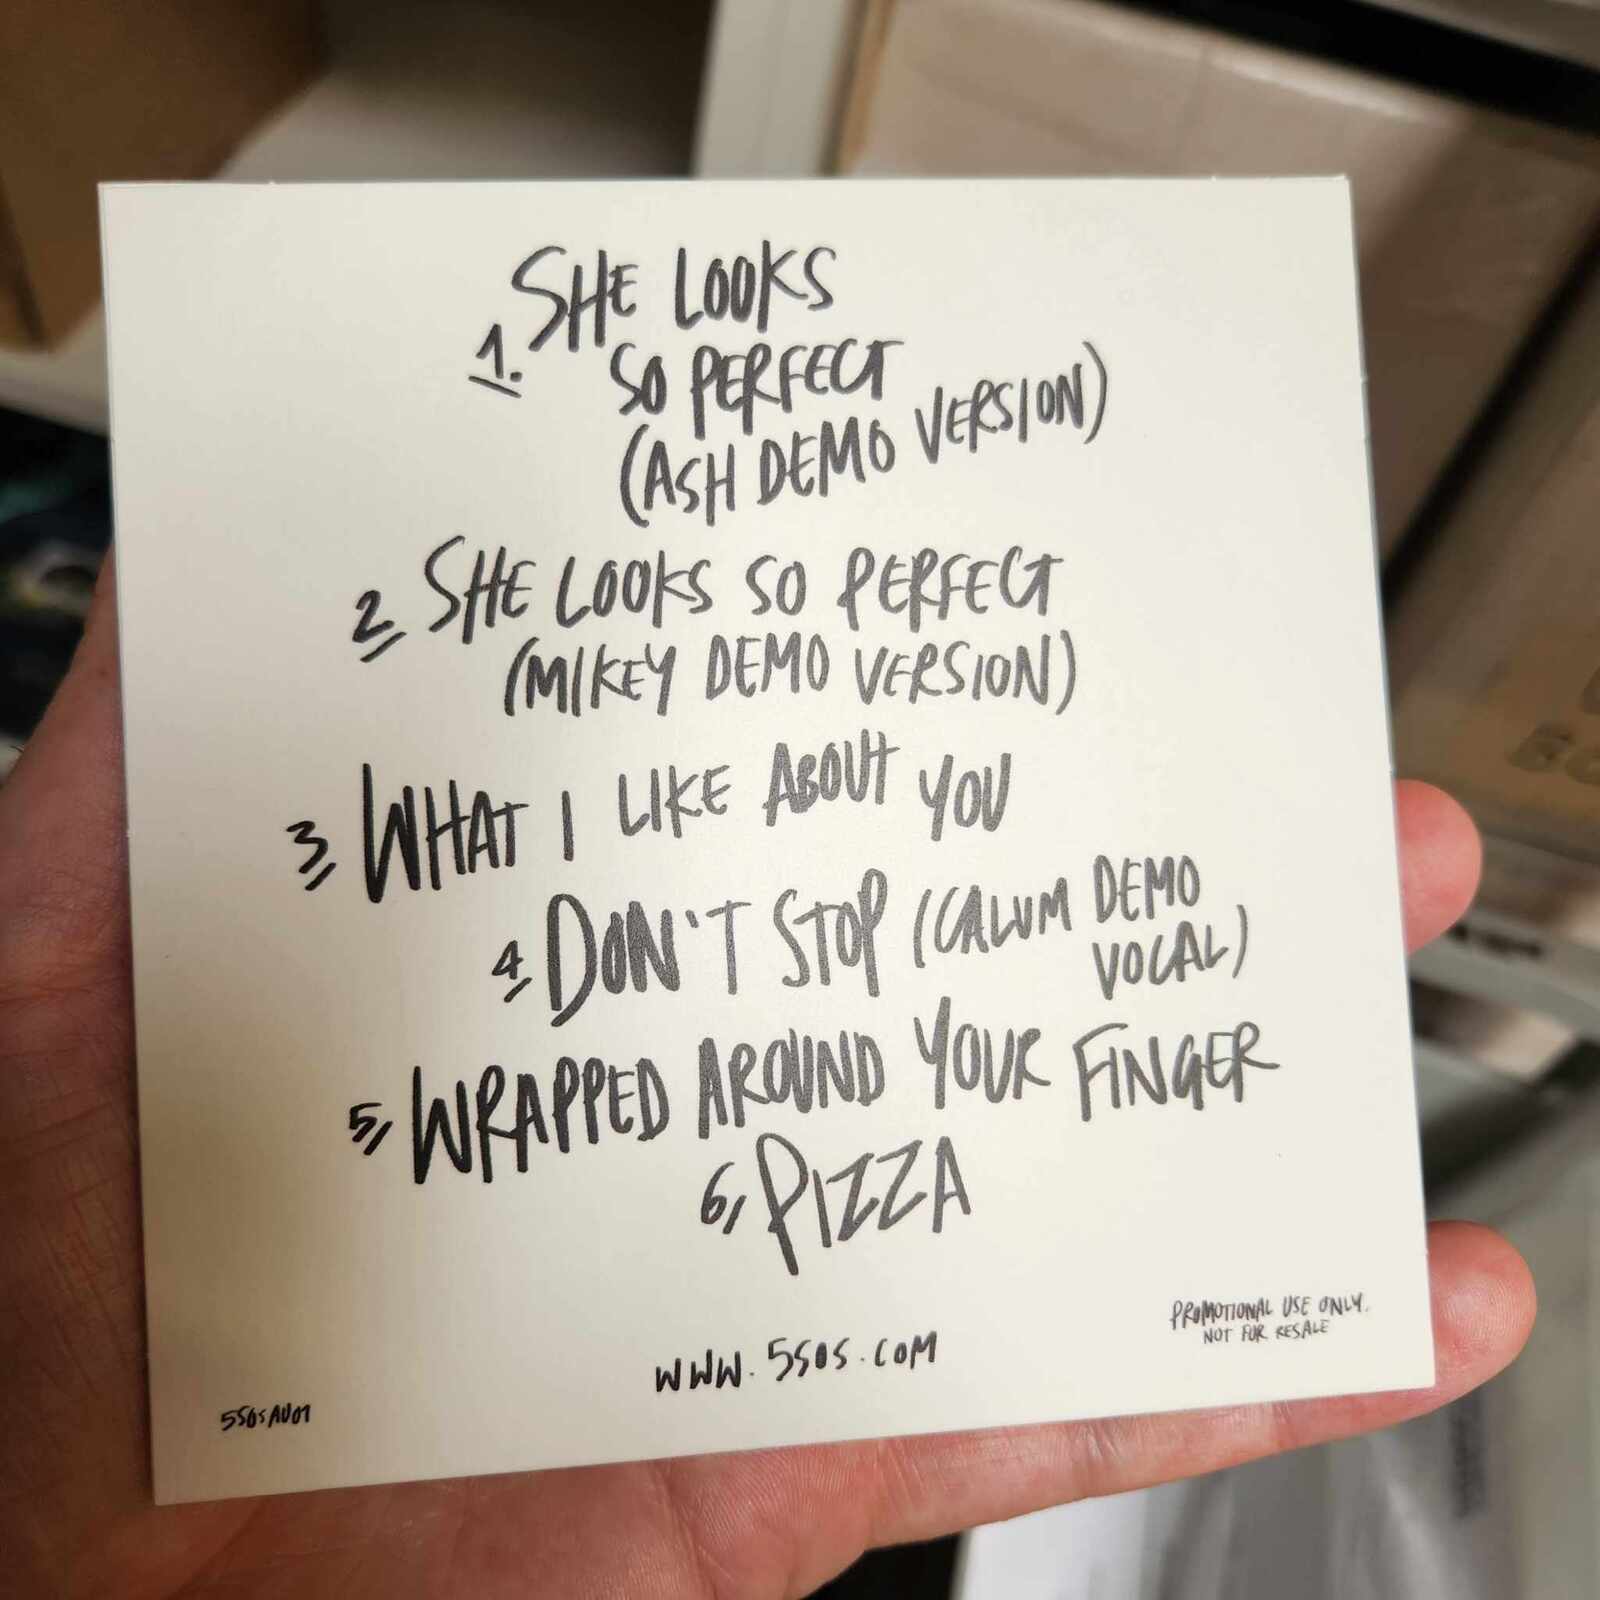 1. SHE LOOKS
SO PERFECT
(ASH DEMO VERSION)
2 SHE LOOKS SO PERFECT
(MIKEY DEMO VERSION)
3 WHAT I LIKE ABOUT YOU
4 DON'T STOP (CALUM DEMO
VOCAL)
5, WRAPPED AROUND YOUR FINGER
6, PIZZA
PROMOTIONAL USE ONLY.
NOT FOR RESALE
WWW.5SOS.COM
5SOSAU01